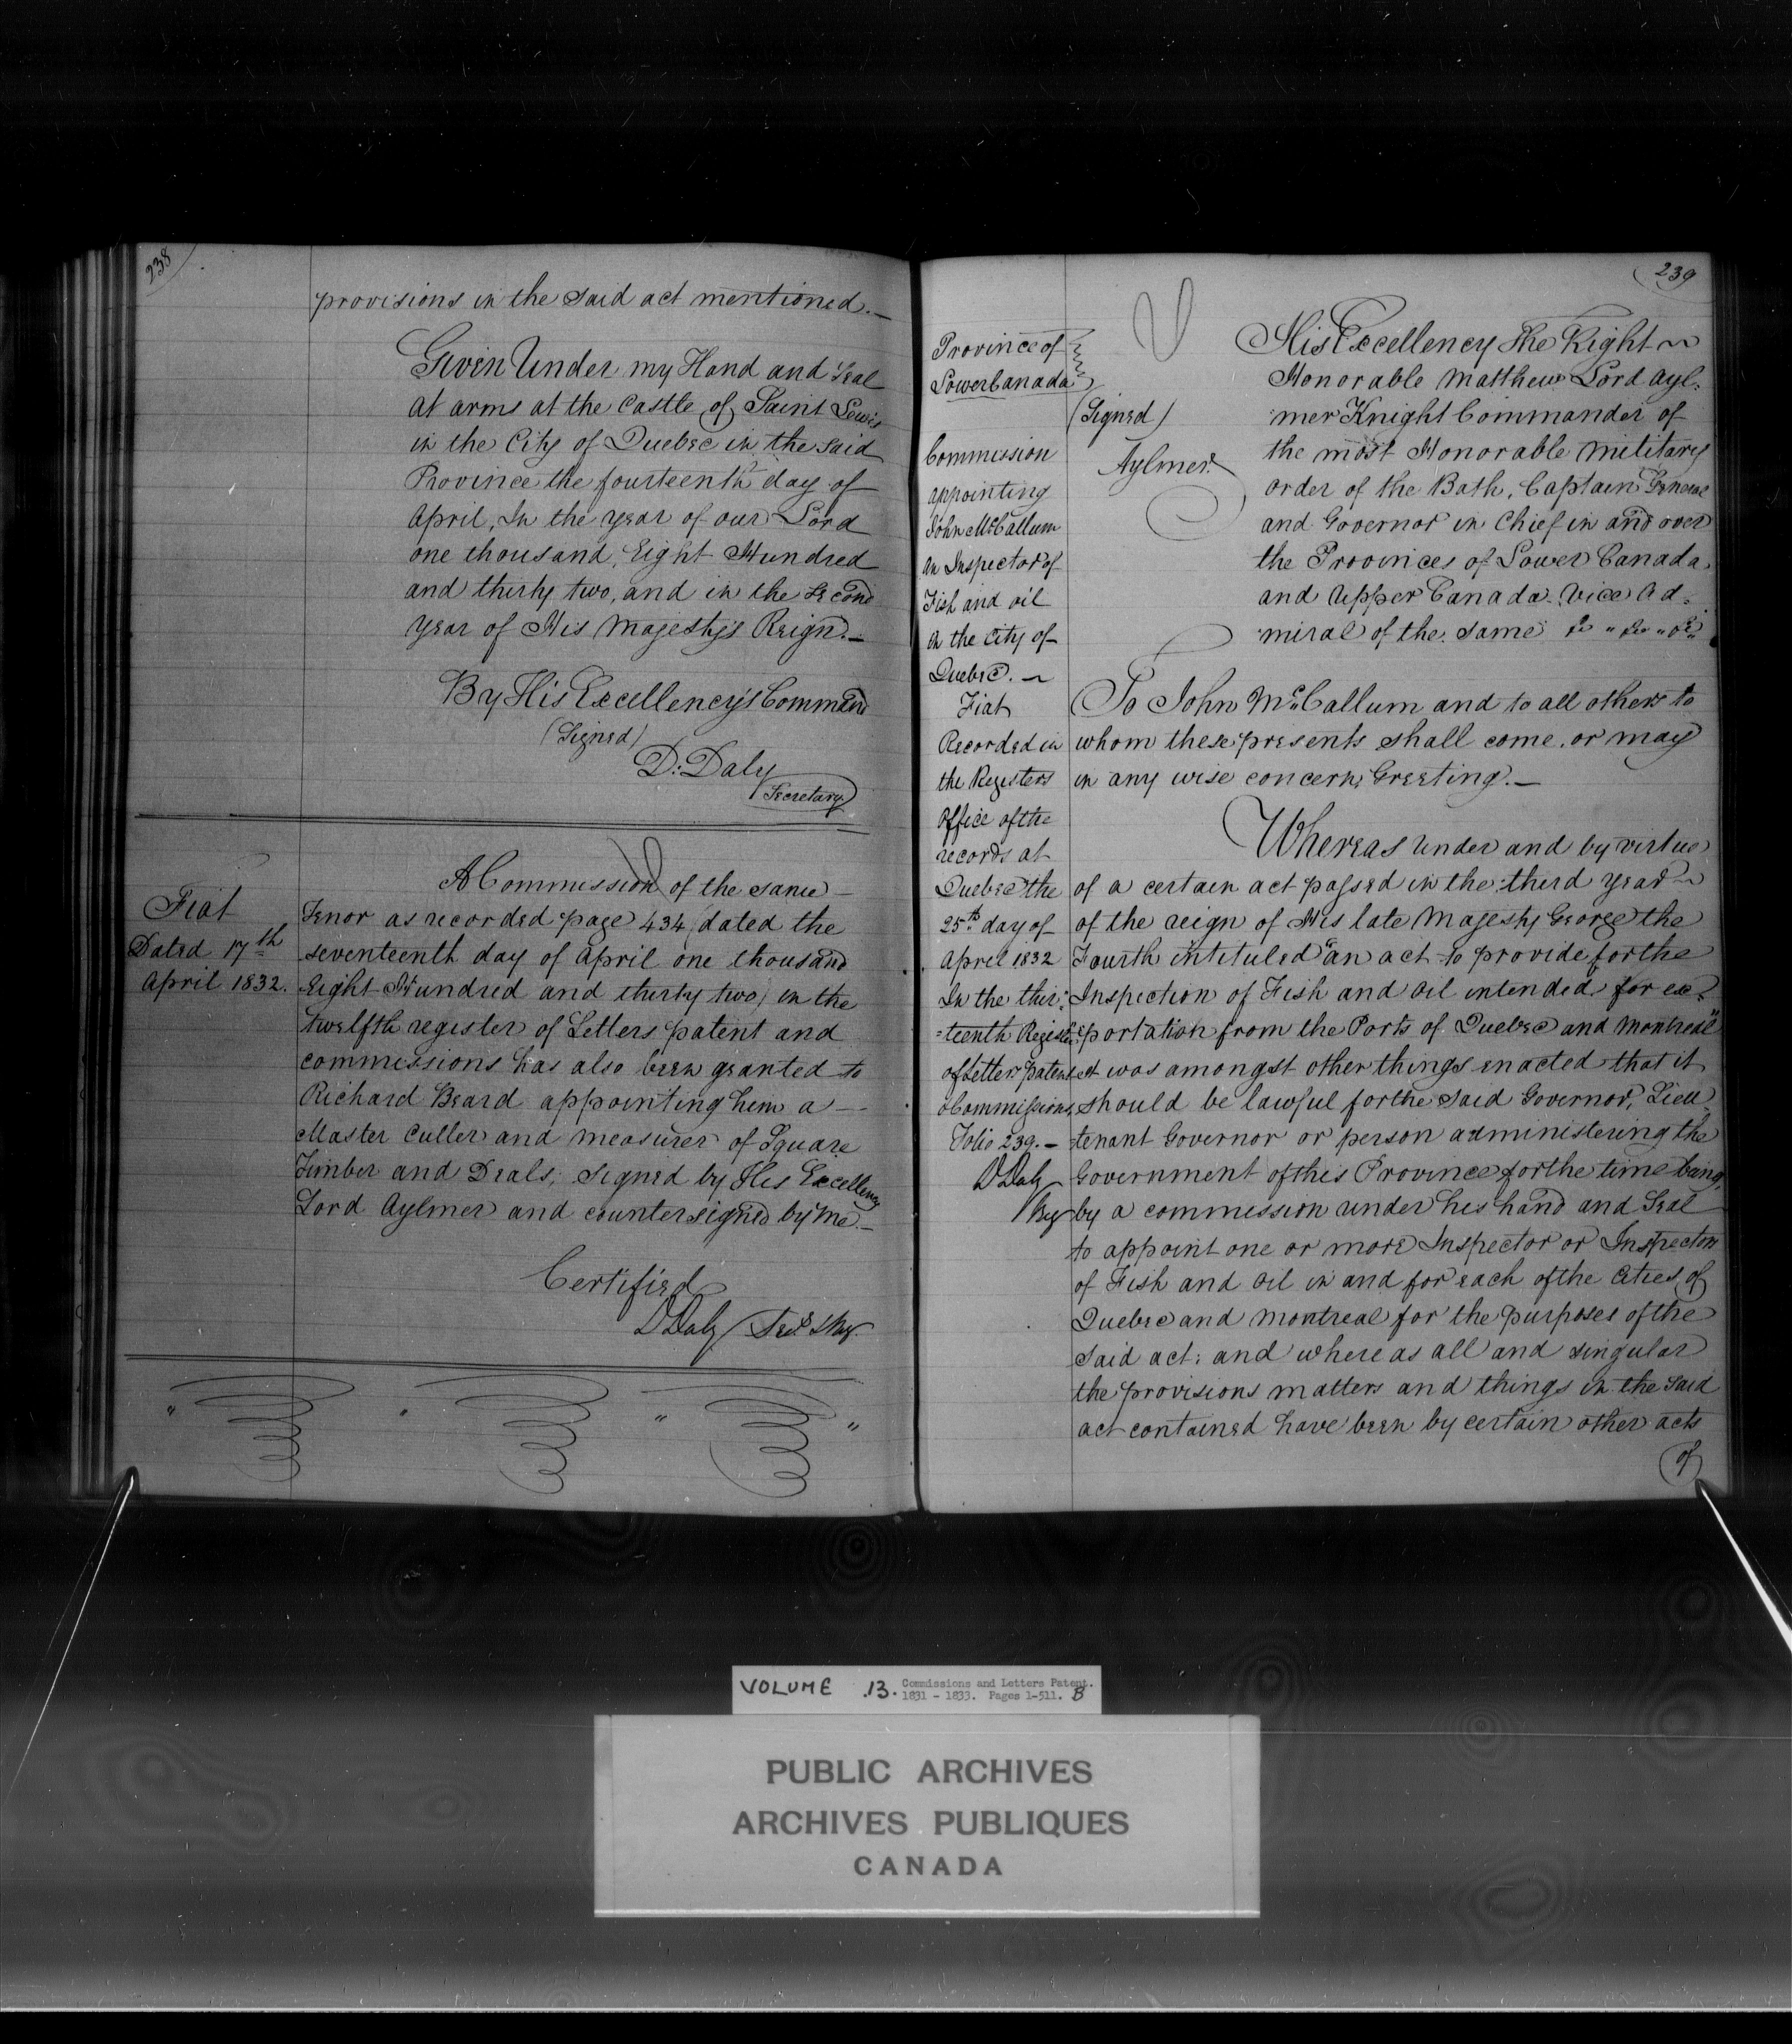 238
provisions in the said act mentioned.—
Given Under my Hand and Seal
at arms at the Castle of Saint Lewis
in the City of Quebec in the said
Province the fourteenth day of
April, In the year of our Lord
one thousand, Eight Hundred
and thirty two, and in the second
year of His Majesty's Reign.—
By His Excellency's Command
(Signed)
D: Daly
Secretary
Fiat
Dated 17th
April 1832.
A Commission of the same
Tenor as recorded page 434 (dated the
seventeenth day of April one thousand
Eight Hundred and thirty two) in the
twelfth register of Letters patent and
commissions has also been granted to
Richard Beard appointing him a —
Master Culler and measurer of Square
Timber and Deals, signed by His Excellency
Lord Aylmer and countersigned by me.—
Certified
DDaly
239
Province of
Lower Canada
(Signed)
Aylmer.
Commission
appointing
John McCallum
an Inspector of
Fish and oil
in the City of
Quebec.
Fiat
Recorded in
the Registers
Office of the
records at
Quebec the
25th day of
April 1832
In the thir:
=teenth Register
of Letters patent
& Commissions,
Folio 239.—
DDaly
Reg
His Excellency The Right
Honorable Matthew Lord Ayl:
mer Knight Commander of
the most Honorable military
order of the Bath, Captain General
and Governor in Chief in and over
the Provinces of Lower Canada
and Upper Canada Vice Ad:
miral of the same &c " &c " &c
To John McCallum and to all others to
whom these presents shall come, or may
in any wise concern, Greeting.—
Whereas under and by virtue
of a certain act passed in the third year
of the reign of His late Majesty George the
Fourth intituled "an act to provide for the
Inspection of Fish and Oil intended for ex:
:portation from the Ports of Quebec and Montreal"
it was amongst other things enacted that it
should be lawful for the said Governor, Lieu
tenant Governor or person administering the
Government of this Province for the time being,
by a commission under his hand and Seal
to appoint one or more Inspector or Inspectors
of Fish and Oil in and for each of the Cities of
Quebec and Montreal for the purposes of the
said act: and whereas all and singular
the provisions matters and things in the said
act contained have been by certain other acts
of
VOLUME 13. Commissions and Letters Patent.
1831 - 1833. Pages 1-511. B
PUBLIC ARCHIVES
ARCHIVES PUBLIQUES
CANADA